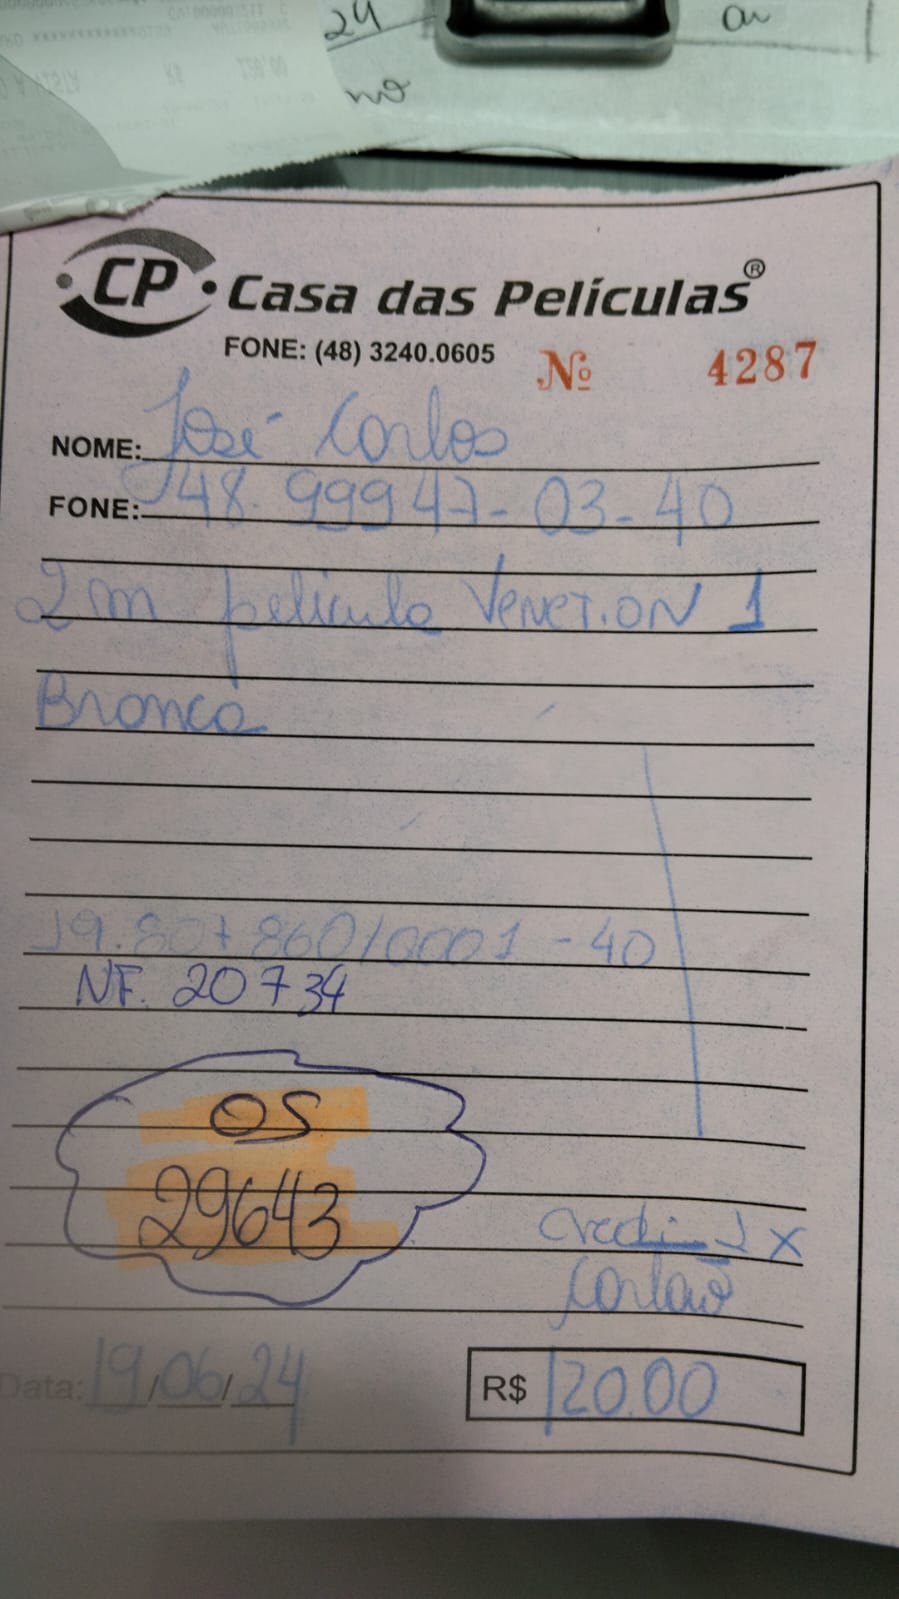 24
au
no
CP
Casa das Películas®
FONE: (48) 3240.0605
Nº 4287
NOME: José Carlos
FONE: 48-99947-03-40
2m pelicula VENET.ON 1
Branca
19.807860/0001-40
NF. 20734
OS
29643
Credi 1x
Cartao
Data: 19/06/24
R$ 120.00